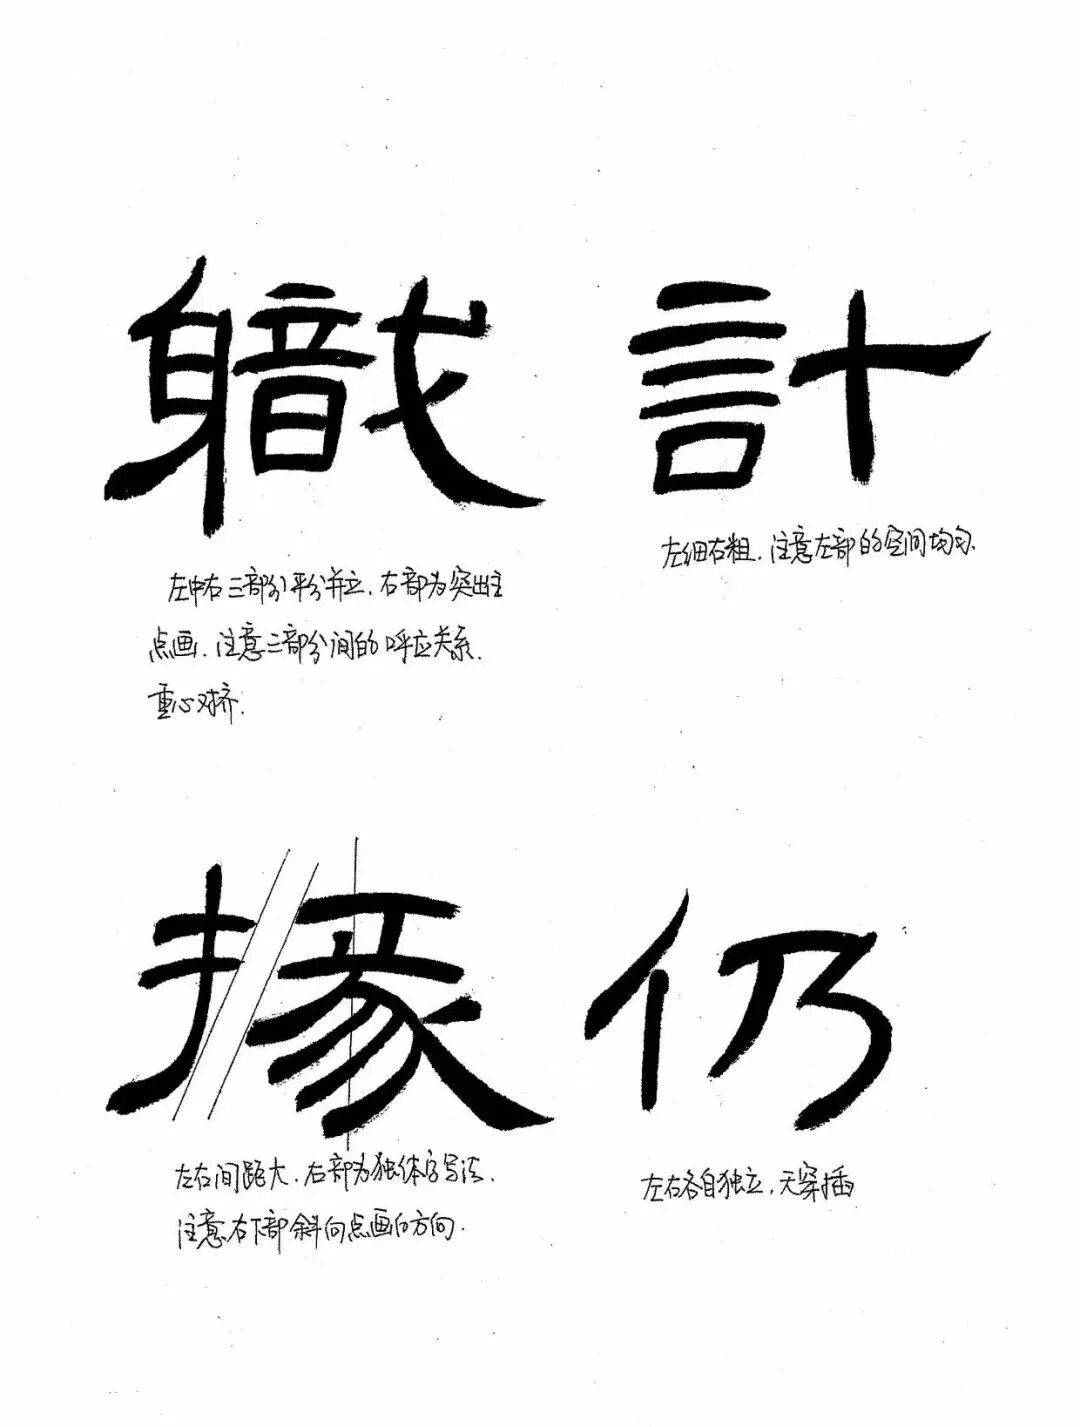 職
左中右三部分平分并立.右部为突出主
点画.注意三部分间的呼应关系.
重心对挤.
計
左细右粗.注意左部的空间均匀.
掾
左右间距大.右部为独体字写法.
注意右下部斜向点画的方向.
仍
左右各自独立,无穿插